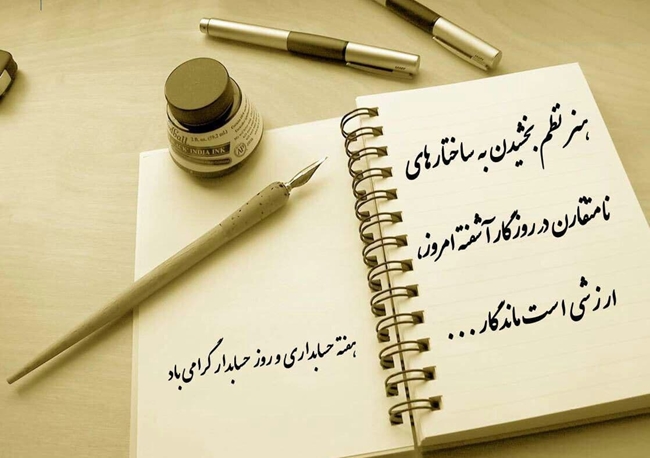 هنر نظم بخشیدن به ساختارهای
نامتقارن در روزگار آشفته امروز،
ارزشی است ماندگار ...
هفته حسابداری و روز حسابدار گرامی باد
INDIA INK